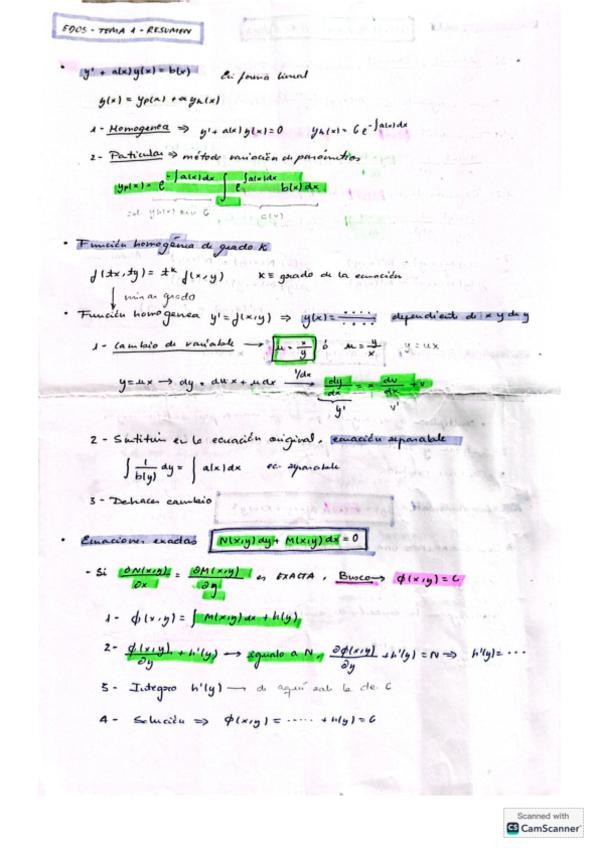 EDOS - TEMA 1 - RESUMEN
• y' + a(x) y(x) = b(x) En forma lineal
y(x) = yp(x) + α yh(x)
1 - Homogenea ⇒ y' + a(x) y(x) = 0 yh(x) = C e^-∫a(x)dx
2 - Paticular ⇒ método variación de parámetros
yp(x) = e^-∫a(x)dx ∫ e^∫a(x)dx b(x) dx
sol yh(x) sin C
• Función homogénea de grado K
f(tx, ty) = t^k f(x,y) K ≡ grado de la ecuación
↓ mismo grado
• Función homogenea y' = f(x,y) ⇒ y(x) = ..... dependiente de x y de y
1 - Cambio de variable → u = x/y ó u = y/x y = ux
y = ux → dy = du x + u dx 1/dx → dy/dx = x dv/dx + v
y' v'
2 - Sustituir en la ecuación original, ecuación separable
∫ 1/b(y) dy = ∫ a(x) dx ec. separable
3 - Deshacer cambio
• Ecuaciones exactas N(x,y) dy + M(x,y) dx = 0
- Si ∂N(x,y)/∂x = ∂M(x,y)/∂y es EXACTA, Busco → ϕ(x,y) = C
1 - ϕ(x,y) = ∫ M(x,y) dx + h(y)
2 - ϕ(x,y)/∂y + h'(y) → igualo a N, ∂ϕ(x,y)/∂y + h'(y) = N ⇒ h'(y) = ...
3 - Integro h'(y) → de aquí sale la cte C
4 - Solución ⇒ ϕ(x,y) = ..... + h(y) = C
Scanned with
CS CamScanner